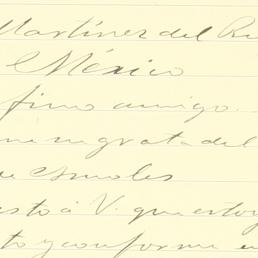 Martinez del Ri
México
fino amigo.
me es grata del
de
esto á V. que estoy
to y conforme en